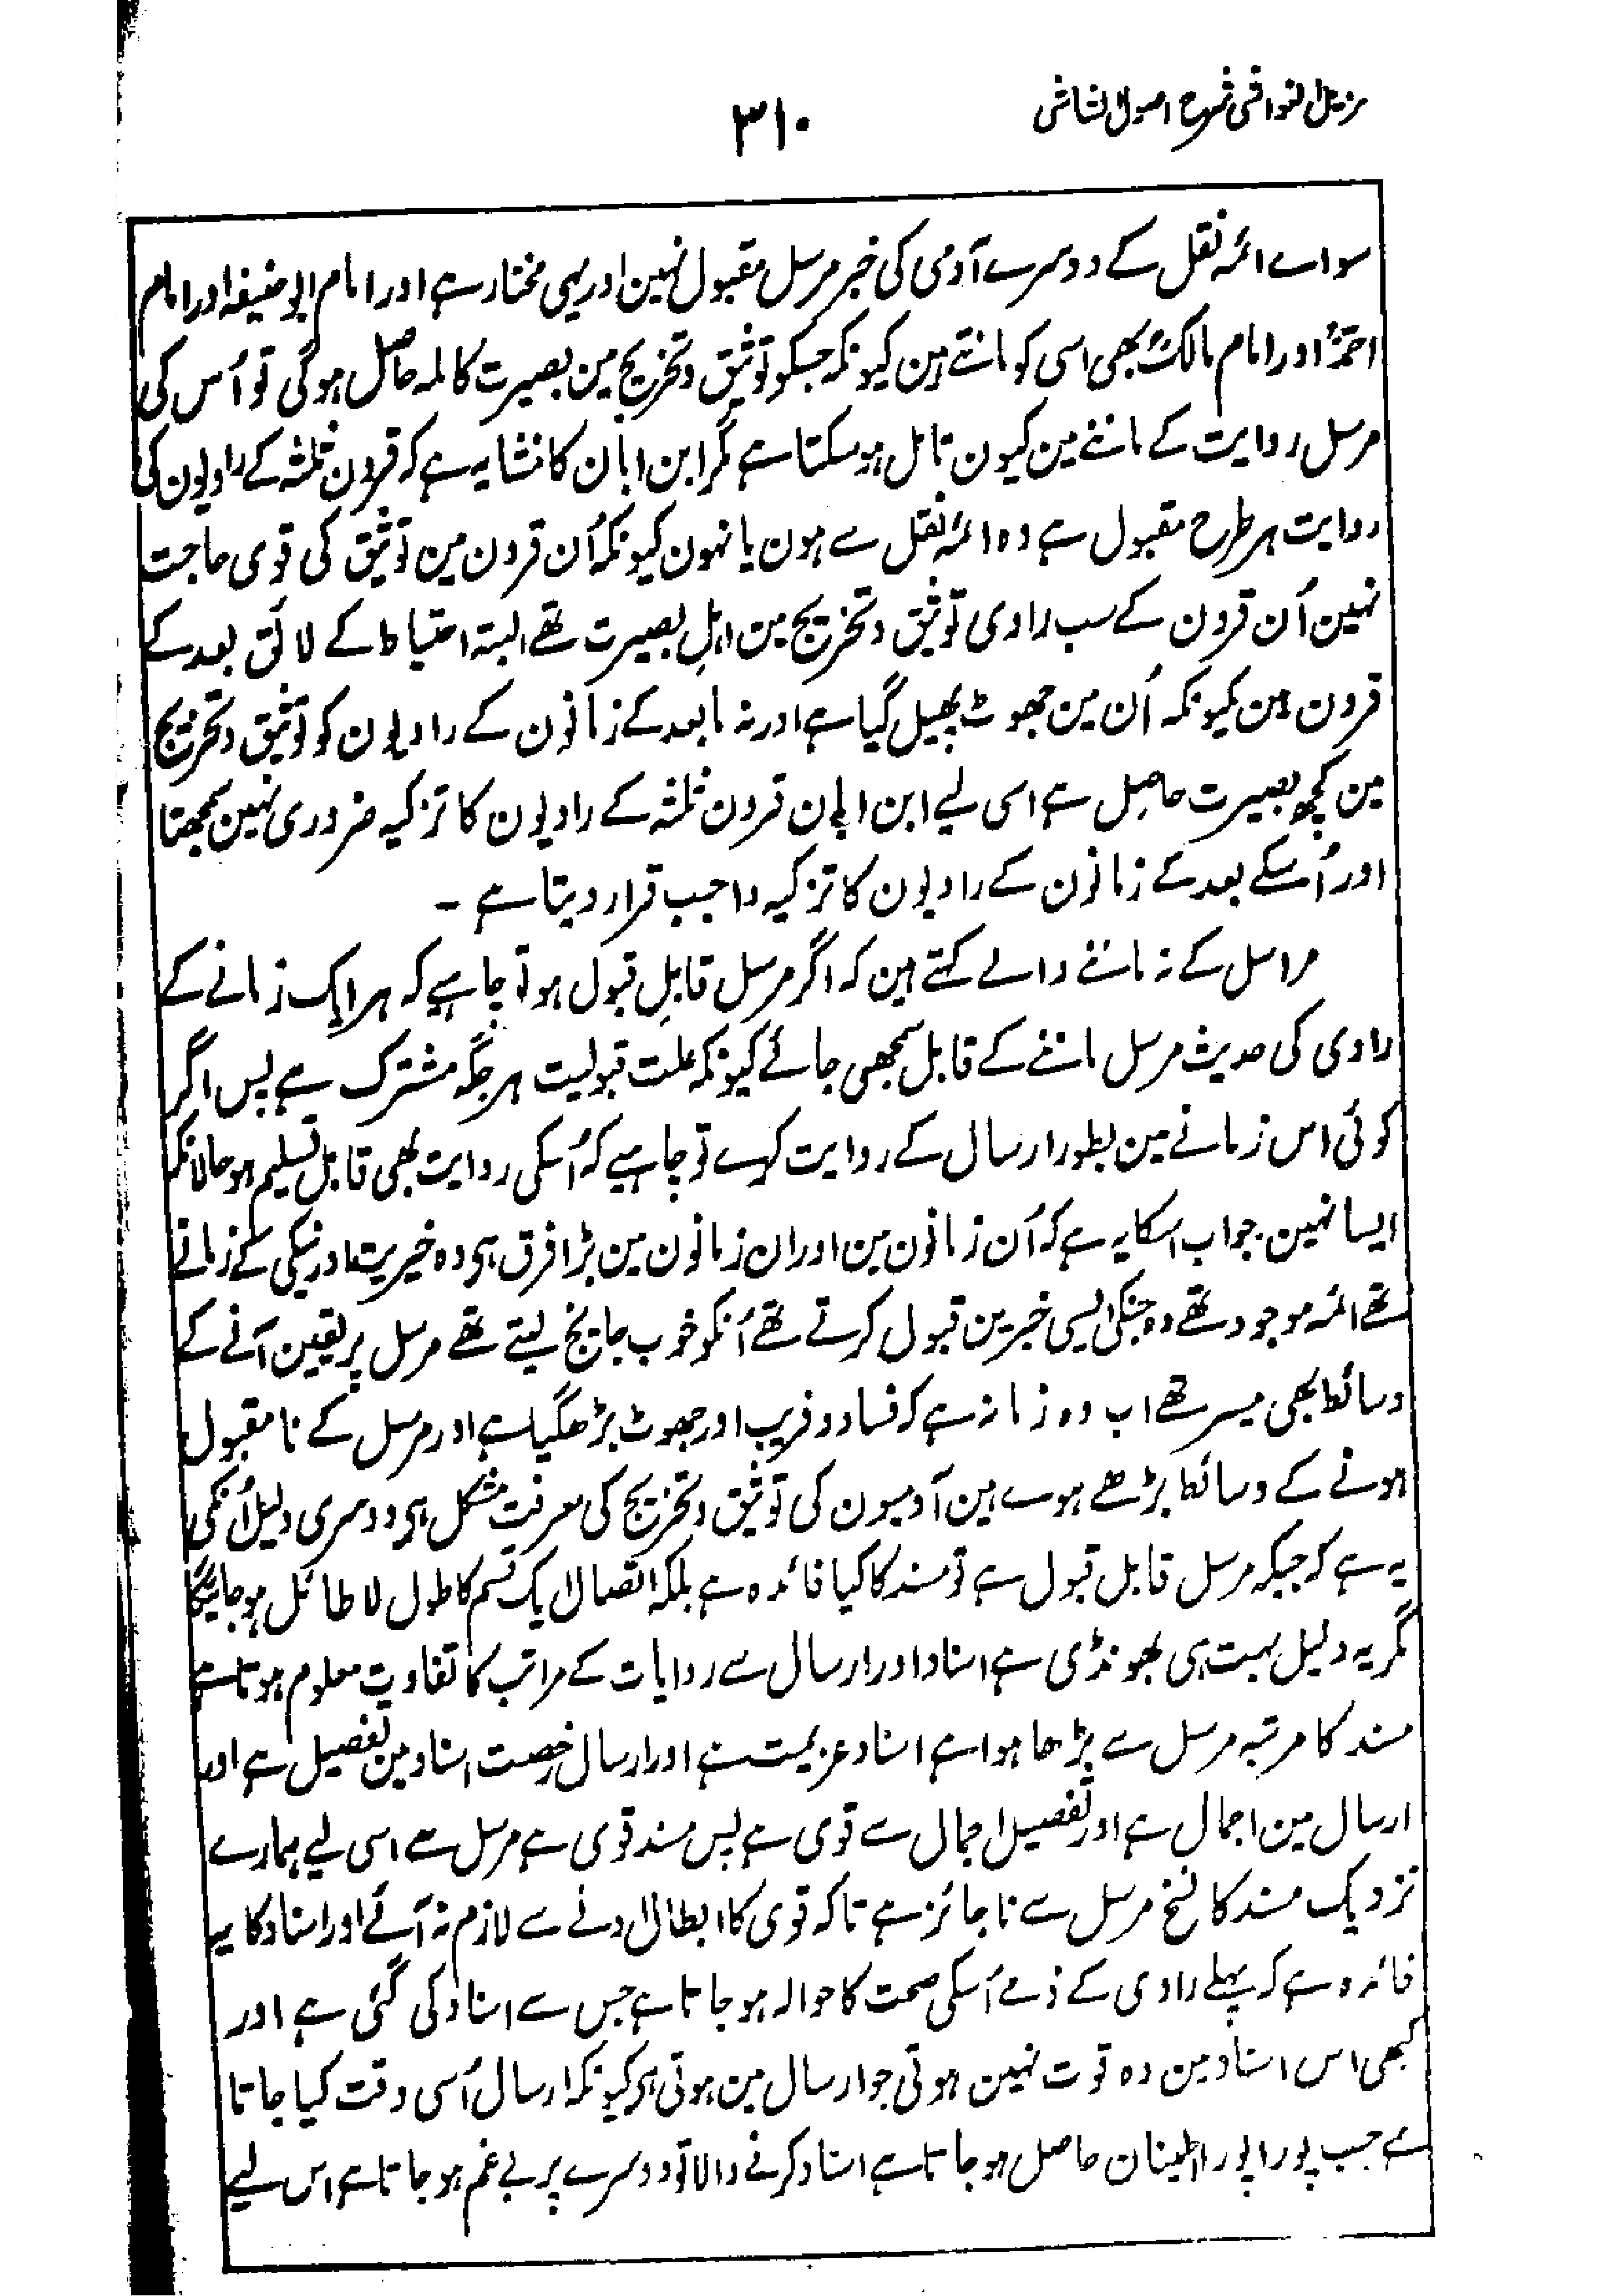 مزیل الغواشی شرح اصول الشاشی
۳۱۰
سواے ائمہ نقل کے دوسرے آدمی کی خبر مرسل مقبول نہین اور یہی مختار ہے اور امام ابو حنیفہ اور امام
احمدؒ اور امام مالکؒ بھی اسی کو مانتے ہین کیونکہ جسکو توثیق وتخریج مین بصیرت کاملہ حاصل ہوگی تو اُس کی
مرسل روایت کے ماننے مین کیون تامل ہو سکتا ہے مگر ابن ابان کا منشا یہ ہے کہ قرون ثلثہ کے راویون کی
روایت ہر طرح مقبول ہے وہ ائمہ نقل سے ہون یا نہون کیونکہ اُن قرون مین توثیق کی قوی حاجت
نہین اُن قرون کے سب راوی توثیق وتخریج مین اہلِ بصیرت تھے البتہ احتیاط کے لائق بعد کے
قرون ہین کیونکہ اُن مین جھوٹ پھیل گیا ہے اور نہ مابعد کے زمانون کے راویون کو توثیق وتخریج
مین کچھ بصیرت حاصل ہے اسی لیے ابن ابان قرون ثلثہ کے راویون کا تزکیہ ضروری نہین سمجھتا
اور اُسکے بعد کے زمانون کے راویون کا تزکیہ واجب قرار دیتا ہے ۔
مراسل کے نہ ماننے والے کہتے ہین کہ اگر مرسل قابلِ قبول ہو تو چاہیے کہ ہر ایک زمانے کے
راوی کی حدیث مرسل ماننے کے قابل سمجھی جائے کیونکہ علت قبولیت ہر جگہ مشترک ہے پس اگر
کوئی اس زمانے مین بطور ارسال کے روایت کرے تو چاہیے کہ اُسکی روایت بھی قابل تسلیم ہو حالانکہ
ایسا نہین جواب اسکا یہ ہے کہ اُن زمانون مین اور ان زمانون مین بڑا فرق ہی وہ خیریت اور نیکی کے زمانے
تھے ائمہ موجود تھے وہ جنکی ایسی خبرین قبول کرتے تھے اُنکو خوب جانچ لیتے تھے مرسل پر یقین آنے کے
وسائط بھی میسر تھے اب وہ زمانہ ہے کہ فساد و فریب اور جھوٹ بڑھ گیا ہے اور مرسل کے نامقبول
ہونے کے وسائط بڑھے ہوے ہین آدمیون کی توثیق وتخریج کی معرفت مشکل ہی دوسری دلیل اُنکی
یہ ہے کہ جبکہ مرسل قابل قبول ہے تو مسند کا کیا فائدہ ہے بلکہ اتصال ایک قسم کا طول لا طائل ہو جائیگا
مگر یہ دلیل بہت ہی بھونڈی ہے اسناد اور ارسال سے روایات کے مراتب کا تفاوت معلوم ہوتا ہے
مسند کا مرتبہ مرسل سے بڑھا ہوا ہے اسناد عزیمت ہے اور ارسال رخصت اسناد مین تفصیل ہے اور
ارسال مین اجمال ہے اور تفصیل اجمال سے قوی ہے پس مسند قوی ہے مرسل سے اسی لیے ہمارے
نزدیک مسند کا نسخ مرسل سے ناجائز ہے تاکہ قوی کا ابطال ادنے سے لازم نہ آئے اور اسناد کا یہ
فائدہ ہے کہ پہلے راوی کے ذمے اُسکی صحت کا حوالہ ہو جاتا ہے جس سے اسناد کی گئی ہے اور
کبھی اس اسناد مین وہ قوت نہین ہوتی جو ارسال مین ہوتی ہی کیونکہ ارسال اُسی وقت کیا جاتا
ہے جب پورا پورا اطمینان حاصل ہو جاتا ہے اسناد کرنے والا تو دوسرے پر بے غم ہو جاتا ہے اس لیے